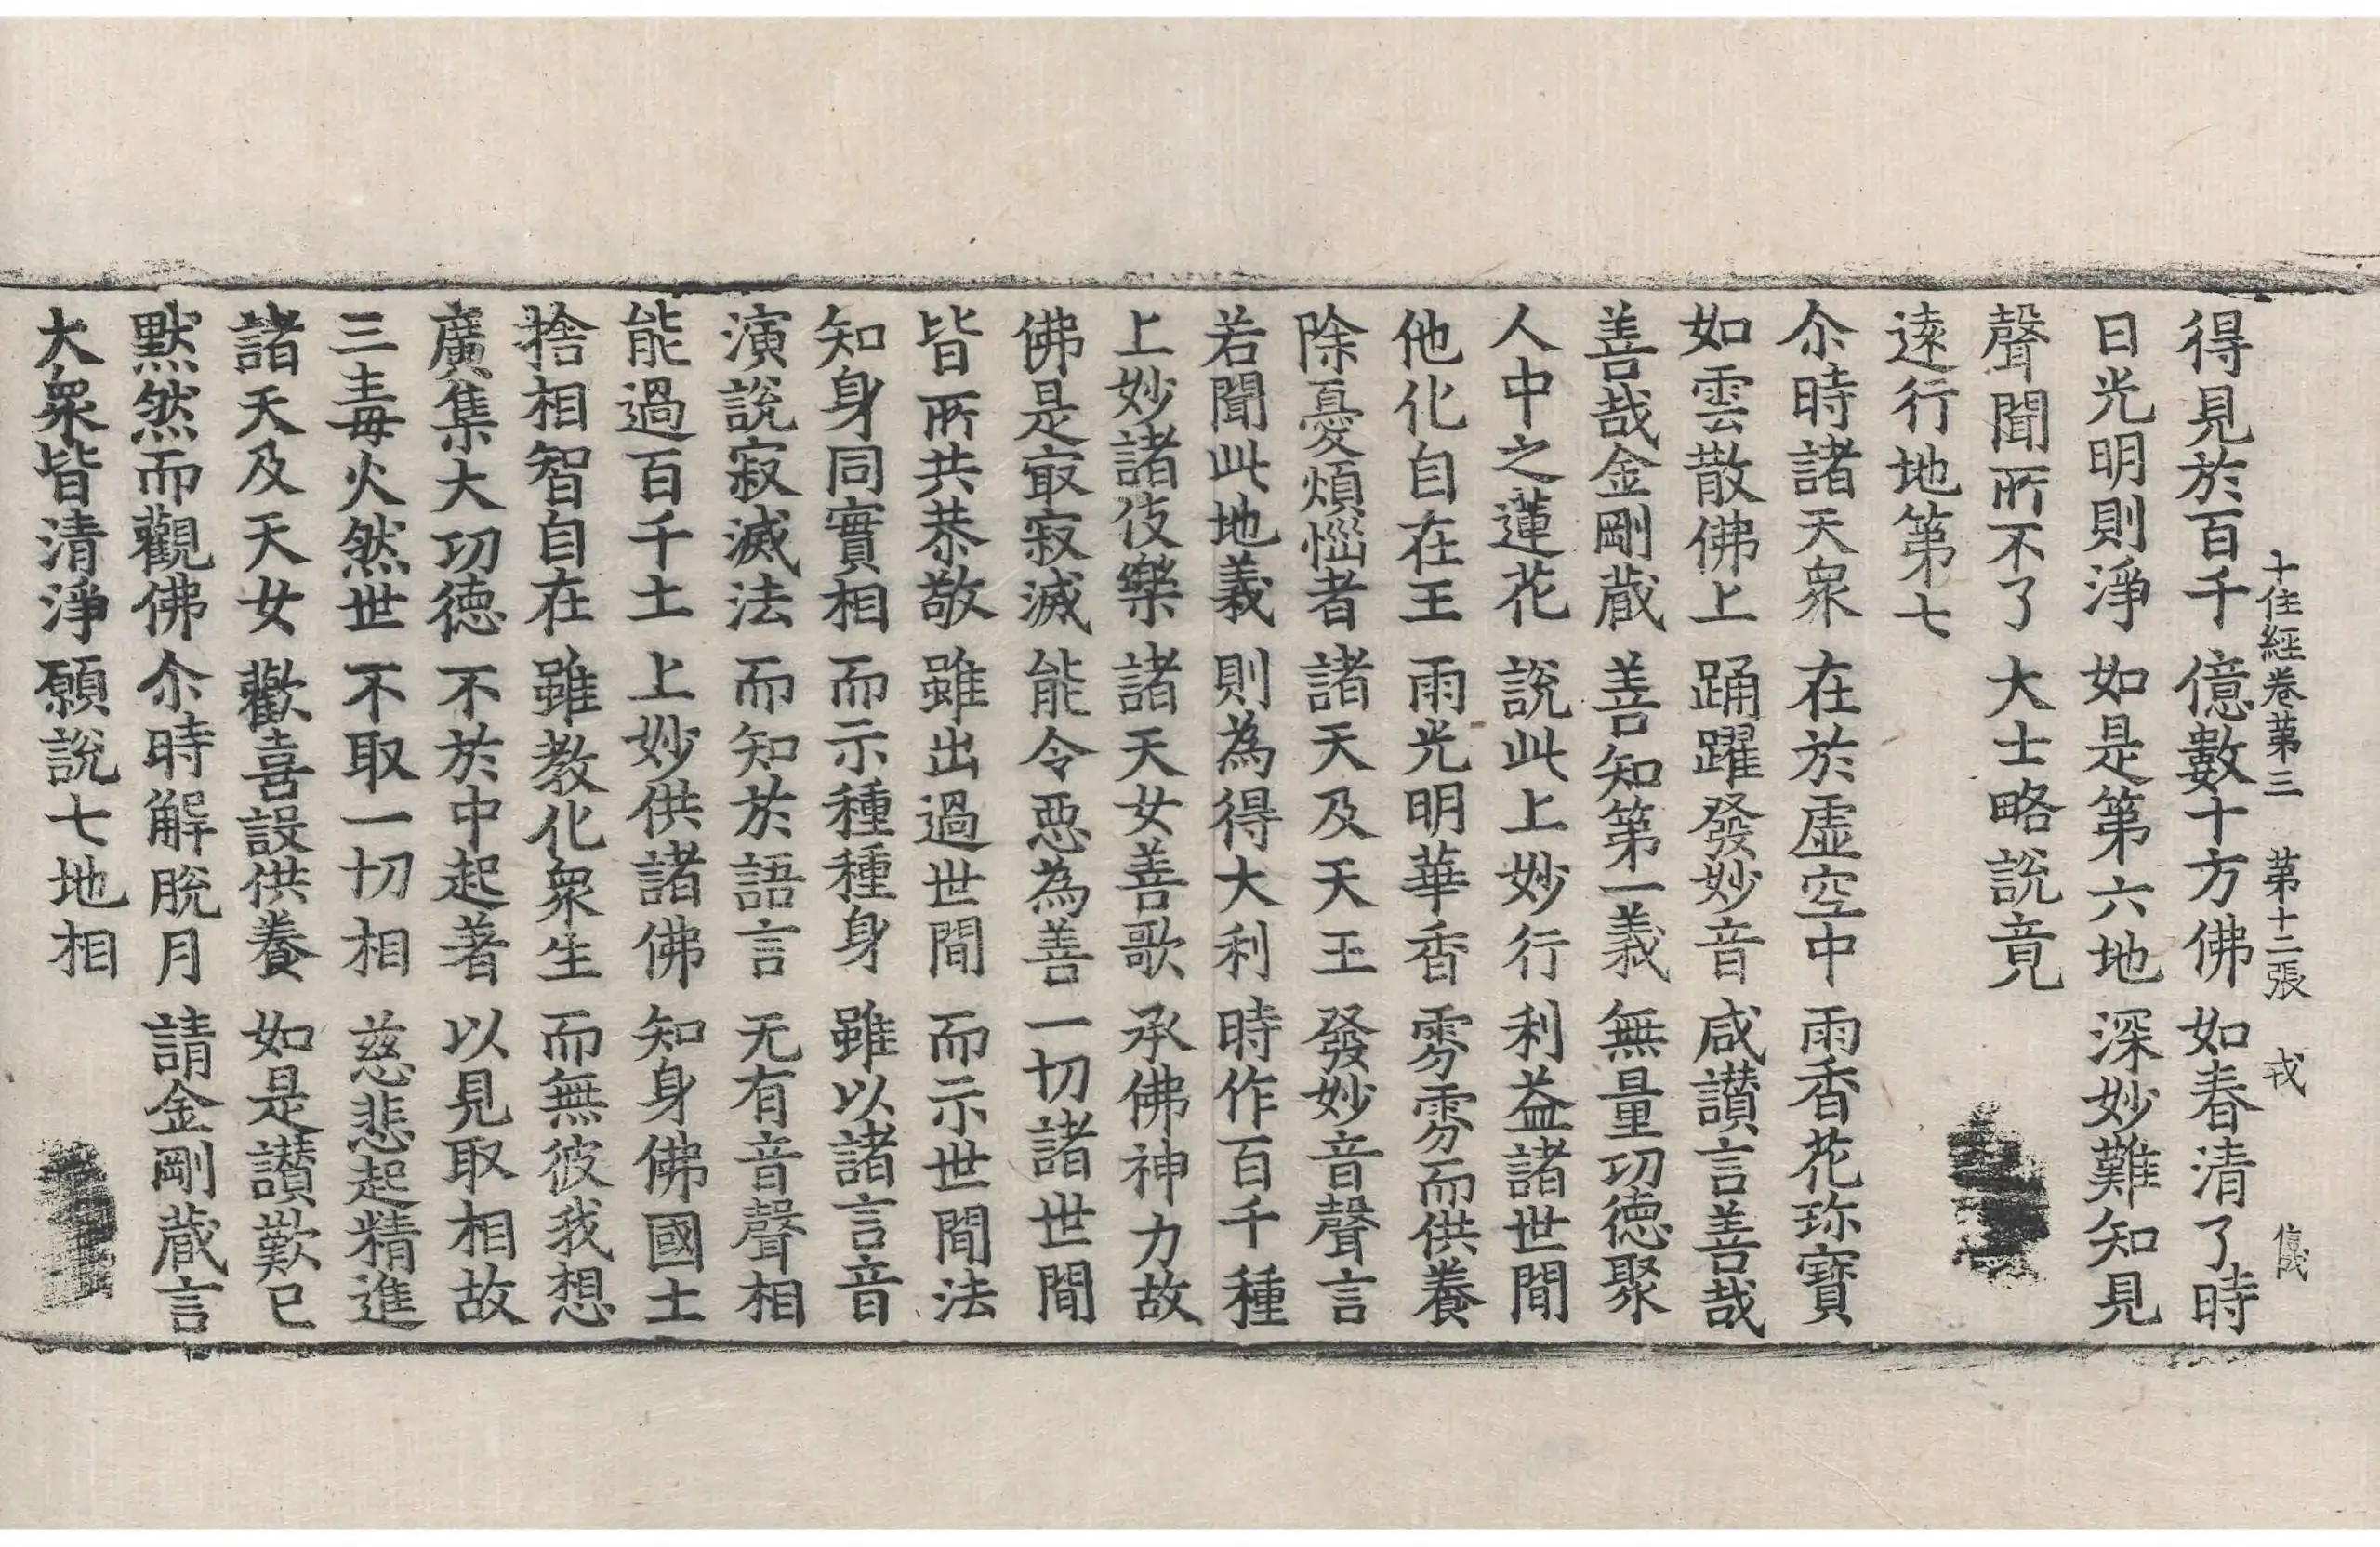 十住經卷第三 第十二張 戎
得見於百千 億數十方佛 如春清了時
日光明則淨 如是第六地 深妙難知見
聲聞所不了 大士略說竟
遠行地第七
尒時諸天衆 在於虛空中 雨香花珎寶
如雲散佛上 踊躍發妙音 咸讃言善哉
善哉金剛蔵 善知第一義 無量功德聚
人中之蓮花 說此上妙行 利益諸世間
他化自在王 雨光明華香 雰雰而供養
除憂煩惱者 諸天及天王 發妙音聲言
若聞此地義 則為得大利 時作百千種
上妙諸伎樂 諸天女善歌 承佛神力故
佛是冣寂滅 能令惡為善 一切諸世間
皆所共恭敬 雖出過世間 而示世間法
知身同實相 而示種種身 雖以諸言音
演說寂滅法 而知於語言 无有音聲相
能過百千土 上妙供諸佛 知身佛國土
捨相智自在 雖教化衆生 而無彼我想
廣集大功德 不於中起著 以見取相故
三毒火然世 不取一切相 慈悲起精進
諸天及天女 歡喜設供養 如是讃歎已
默然而觀佛 尒時解脫月 請金剛蔵言
大衆皆清淨 願說七地相